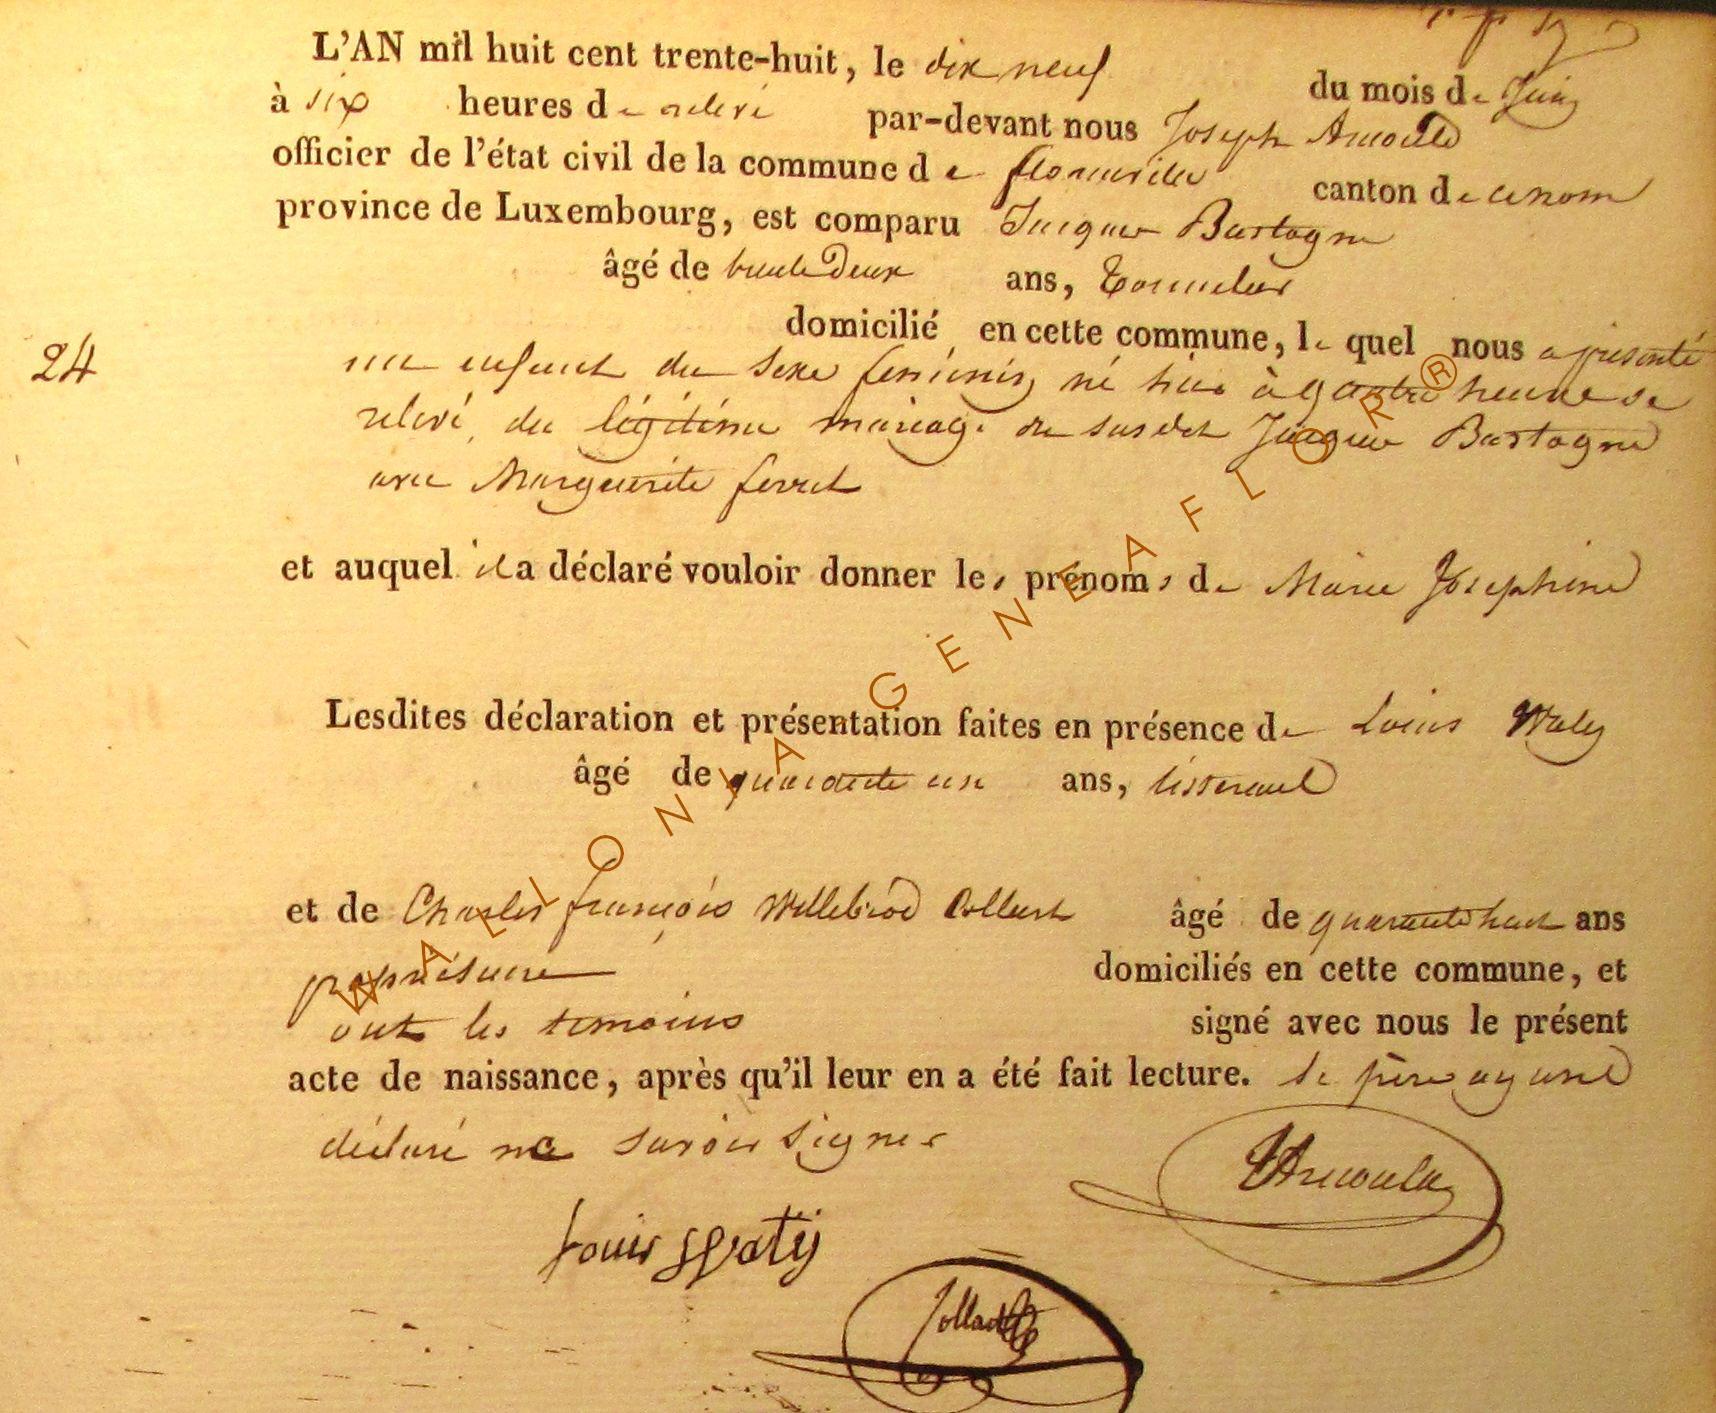 L'AN mil huit cent trente-huit, le dix neuf du mois de Juin
à six heures de relevé par-devant nous Joseph Arnould
officier de l'état civil de la commune de florenville canton de ce nom
province de Luxembourg, est comparu Jacques Bastogne
âgé de trente Deux ans, Tonnelier
domicilié en cette commune, le quel nous a présenté
24
un enfant du sexe féminin né hier à quatre heures de
relevé, du légitime mariage du susdit Jacques Bastogne
avec Marguerite ferret
et auquel il a déclaré vouloir donner les prénoms de Marie Joséphine
Lesdites déclaration et présentation faites en présence de Louis Waty
âgé de quarante un ans, tisserand
et de Charles françois Willebrod Collard âgé de quarante huit ans
propriétaire domiciliés en cette commune, et
ont les témoins signé avec nous le présent
acte de naissance, après qu'il leur en a été fait lecture. Le père ayant
déclaré ne savoir signer
JArnould
Louis Waty
Collard
WALLONIA GENEAFLOR®